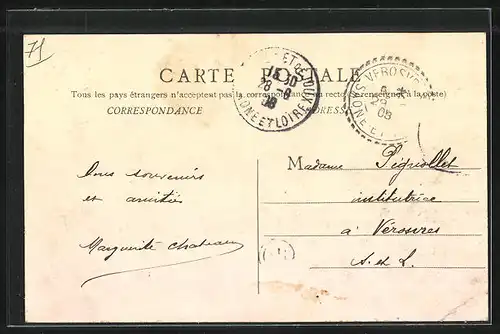 71
CARTE POSTALE
Tous les pays étrangers n'acceptent pas la correspondance au recto (se renseigner à la poste)
CORRESPONDANCE
ADRESSE
ET-LOIRE
28 -8
08
SAONE ET LOIRE
VEROSVRES
28
08
SAONE ET
Bons souvenirs
et amitiés
Marguerite Chateau
Madame
institutrice
à Vérosvres
S. et L.